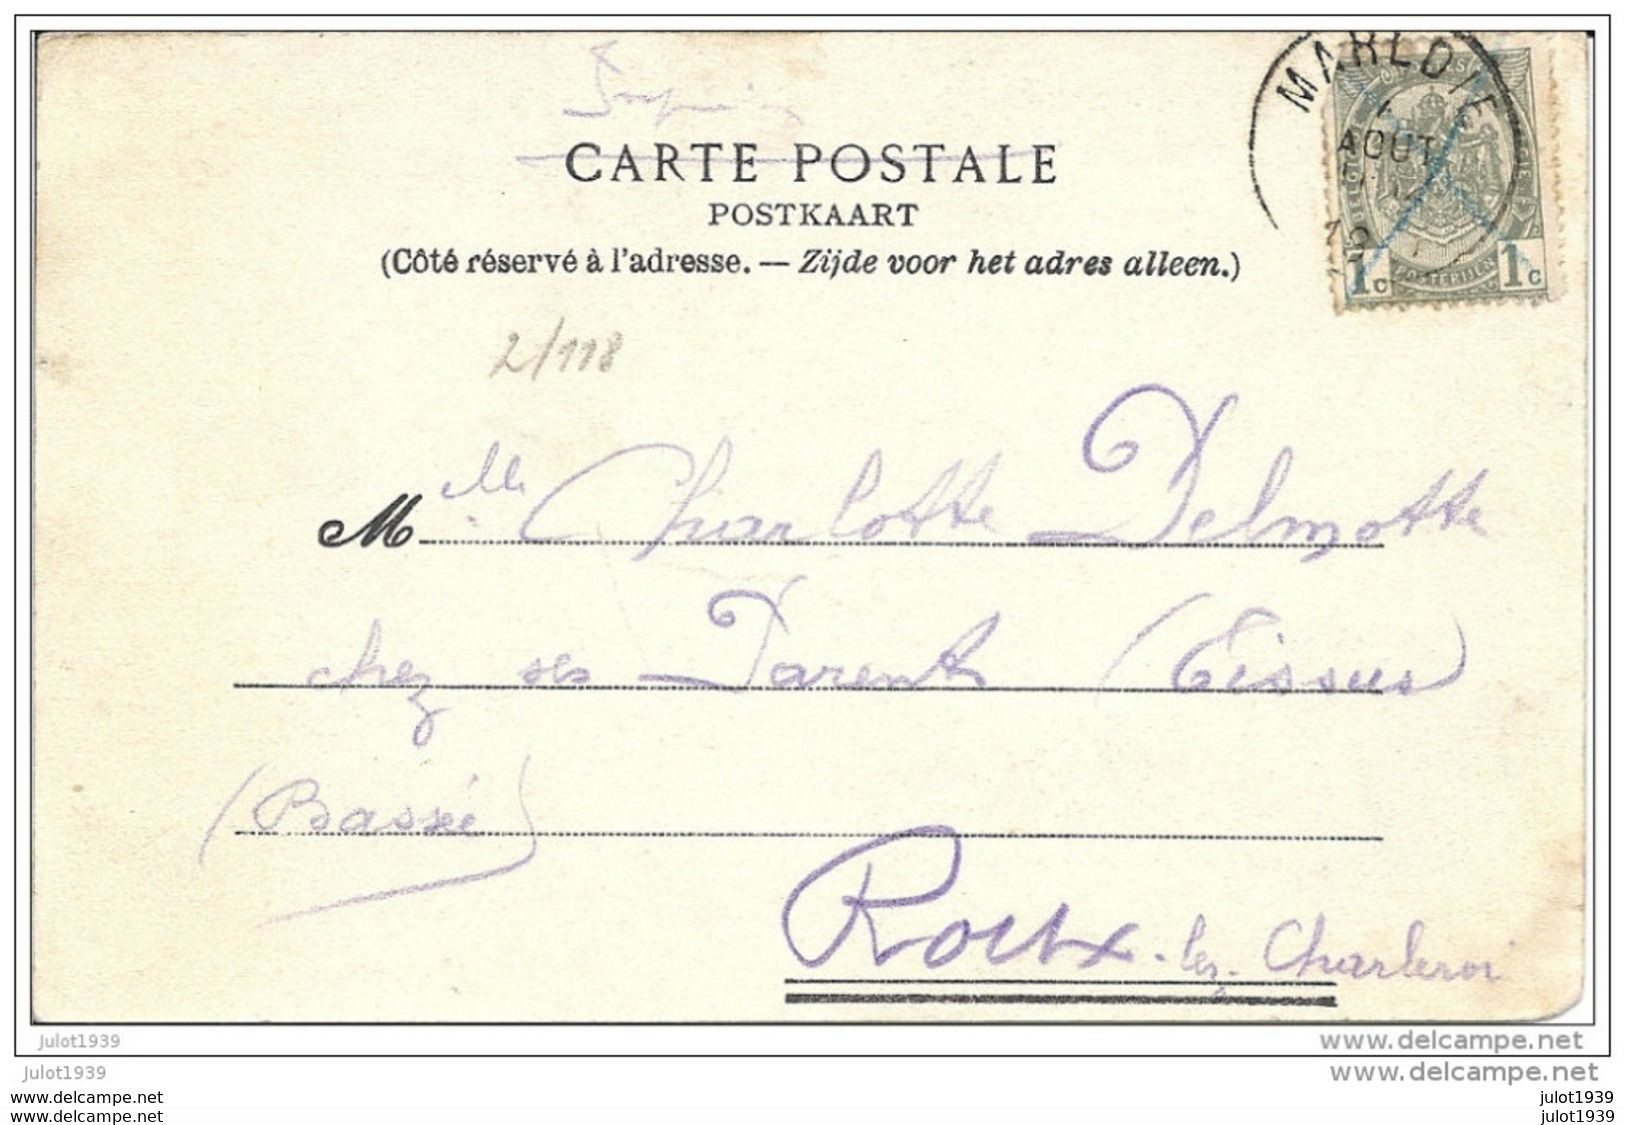 CARTE POSTALE
POSTKAART
(Côté réservé à l'adresse. — Zijde voor het adres alleen.)
MARLOIE
AOUT
POSTERIJEN
1c 1c
2/118
M lle Charlotte Delmotte
chez ses Parents (Tissus)
(Bassée)
Roux-lez-Charleroi
julot1939
www.delcampe.net
julot1939
www.delcampe.net
www.delcampe.net julot1939
www.delcampe.net julot1939